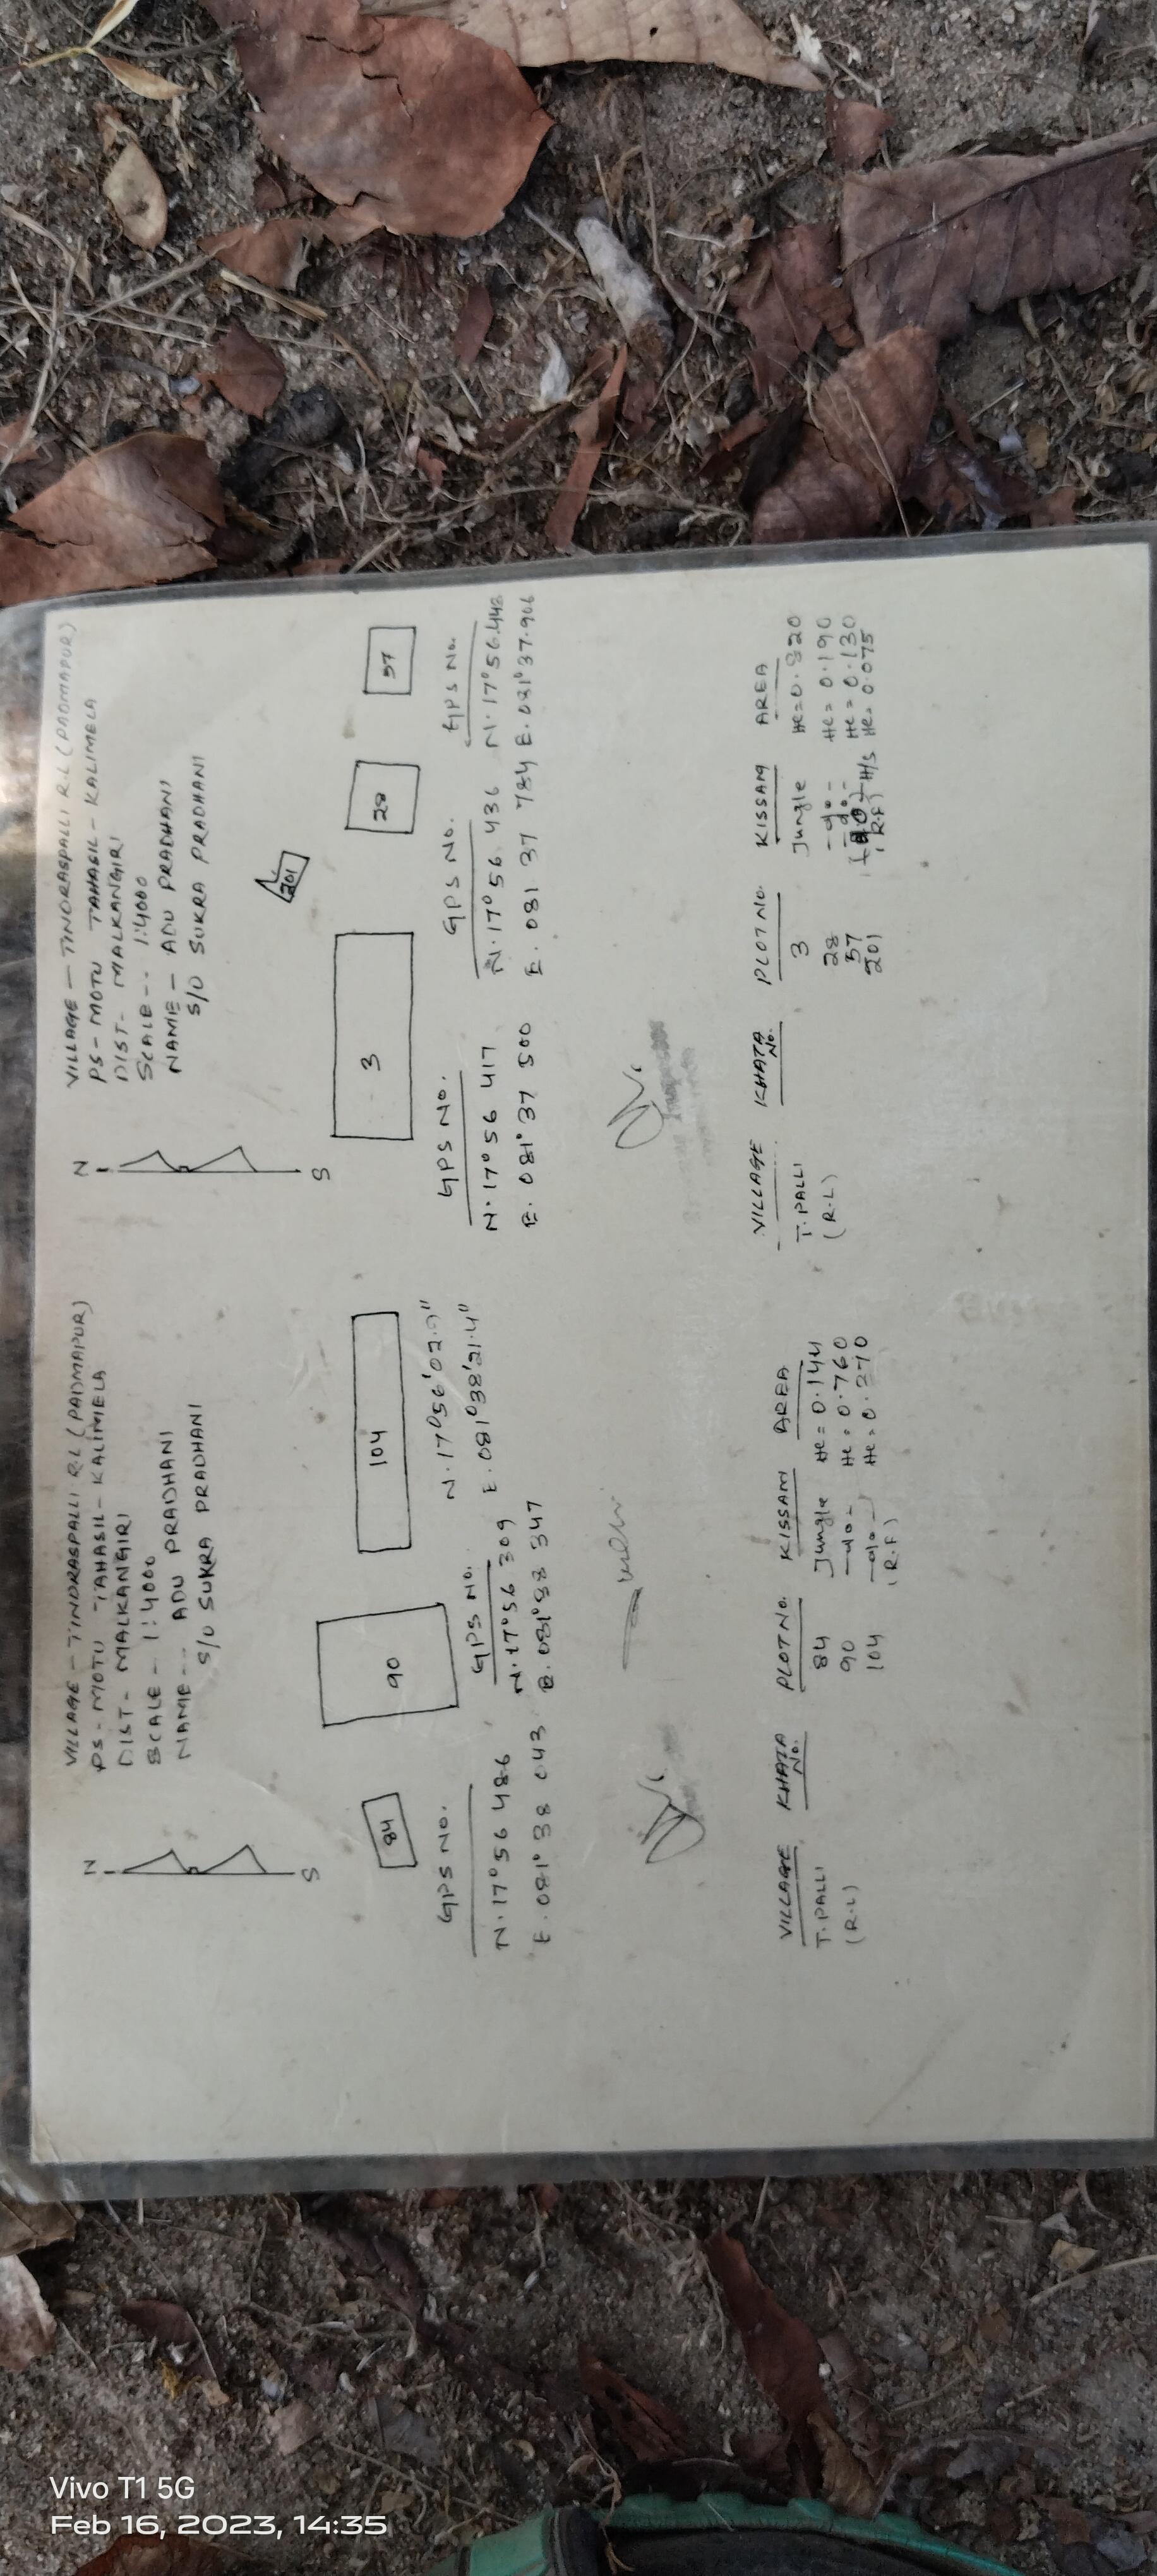 VILLAGE - TINDRASPALLI R.L (PADMAPUR)
PS - MOTU TAHASIL - KALIMELA
DIST - MALKANGIRI
SCALE - 1:4000
NAME - ADU PRADHANI
S/O SUKRA PRADHANI
N
S
84
90
104
GPS No.
N. 17° 56 486
E. 081° 38 043
GPS No.
N. 17° 56 309
E. 081° 38 347
N. 17° 56' 02.9"
E. 081° 38' 21.4"
VILLAGE KHATA No. PLOT No. KISSAM AREA
T. PALLI 84 Jungle He = 0.144
(R.L) 90 -do- He = 0.760
104 -do- He = 0.270
(R.F)
VILLAGE - TINDRASPALLI R.L (PADMAPUR)
PS - MOTU TAHASIL - KALIMELA
DIST - MALKANGIRI
SCALE - 1:4000
NAME - ADU PRADHANI
S/O SUKRA PRADHANI
N
S
3
201
28
57
GPS No.
N. 17° 56 417
E. 081° 37 500
GPS No.
N. 17° 56 436
E. 081 37 784
GPS No.
N. 17° 56.442
E. 081° 37.906
VILLAGE KHATA No. PLOT No. KISSAM AREA
T. PALLI 3 Jungle
(R.L) 28 -do- He = 0.190
57 -do- He = 0.130
201 H/S He = 0.075
(R.F)
Vivo T1 5G
Feb 16, 2023, 14:35